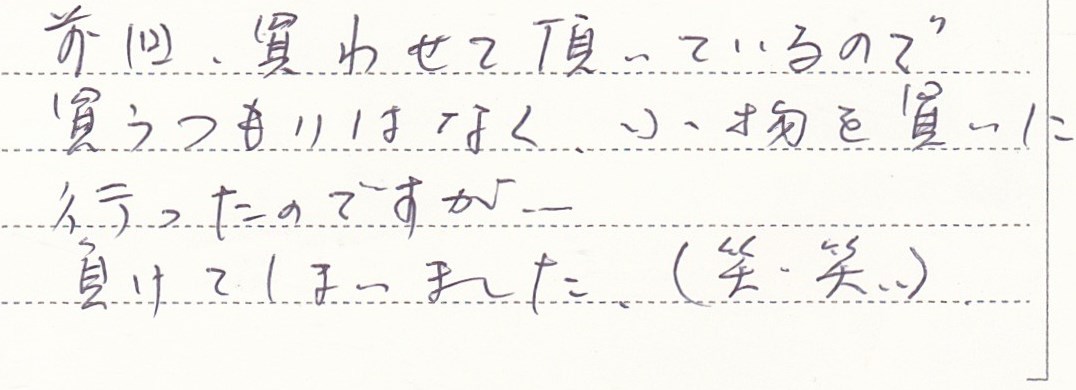 前回、買わせて頂いているので
買うつもりはなく、小物を買いに
行ったのですが…
負けてしまいました。(笑・笑い)。